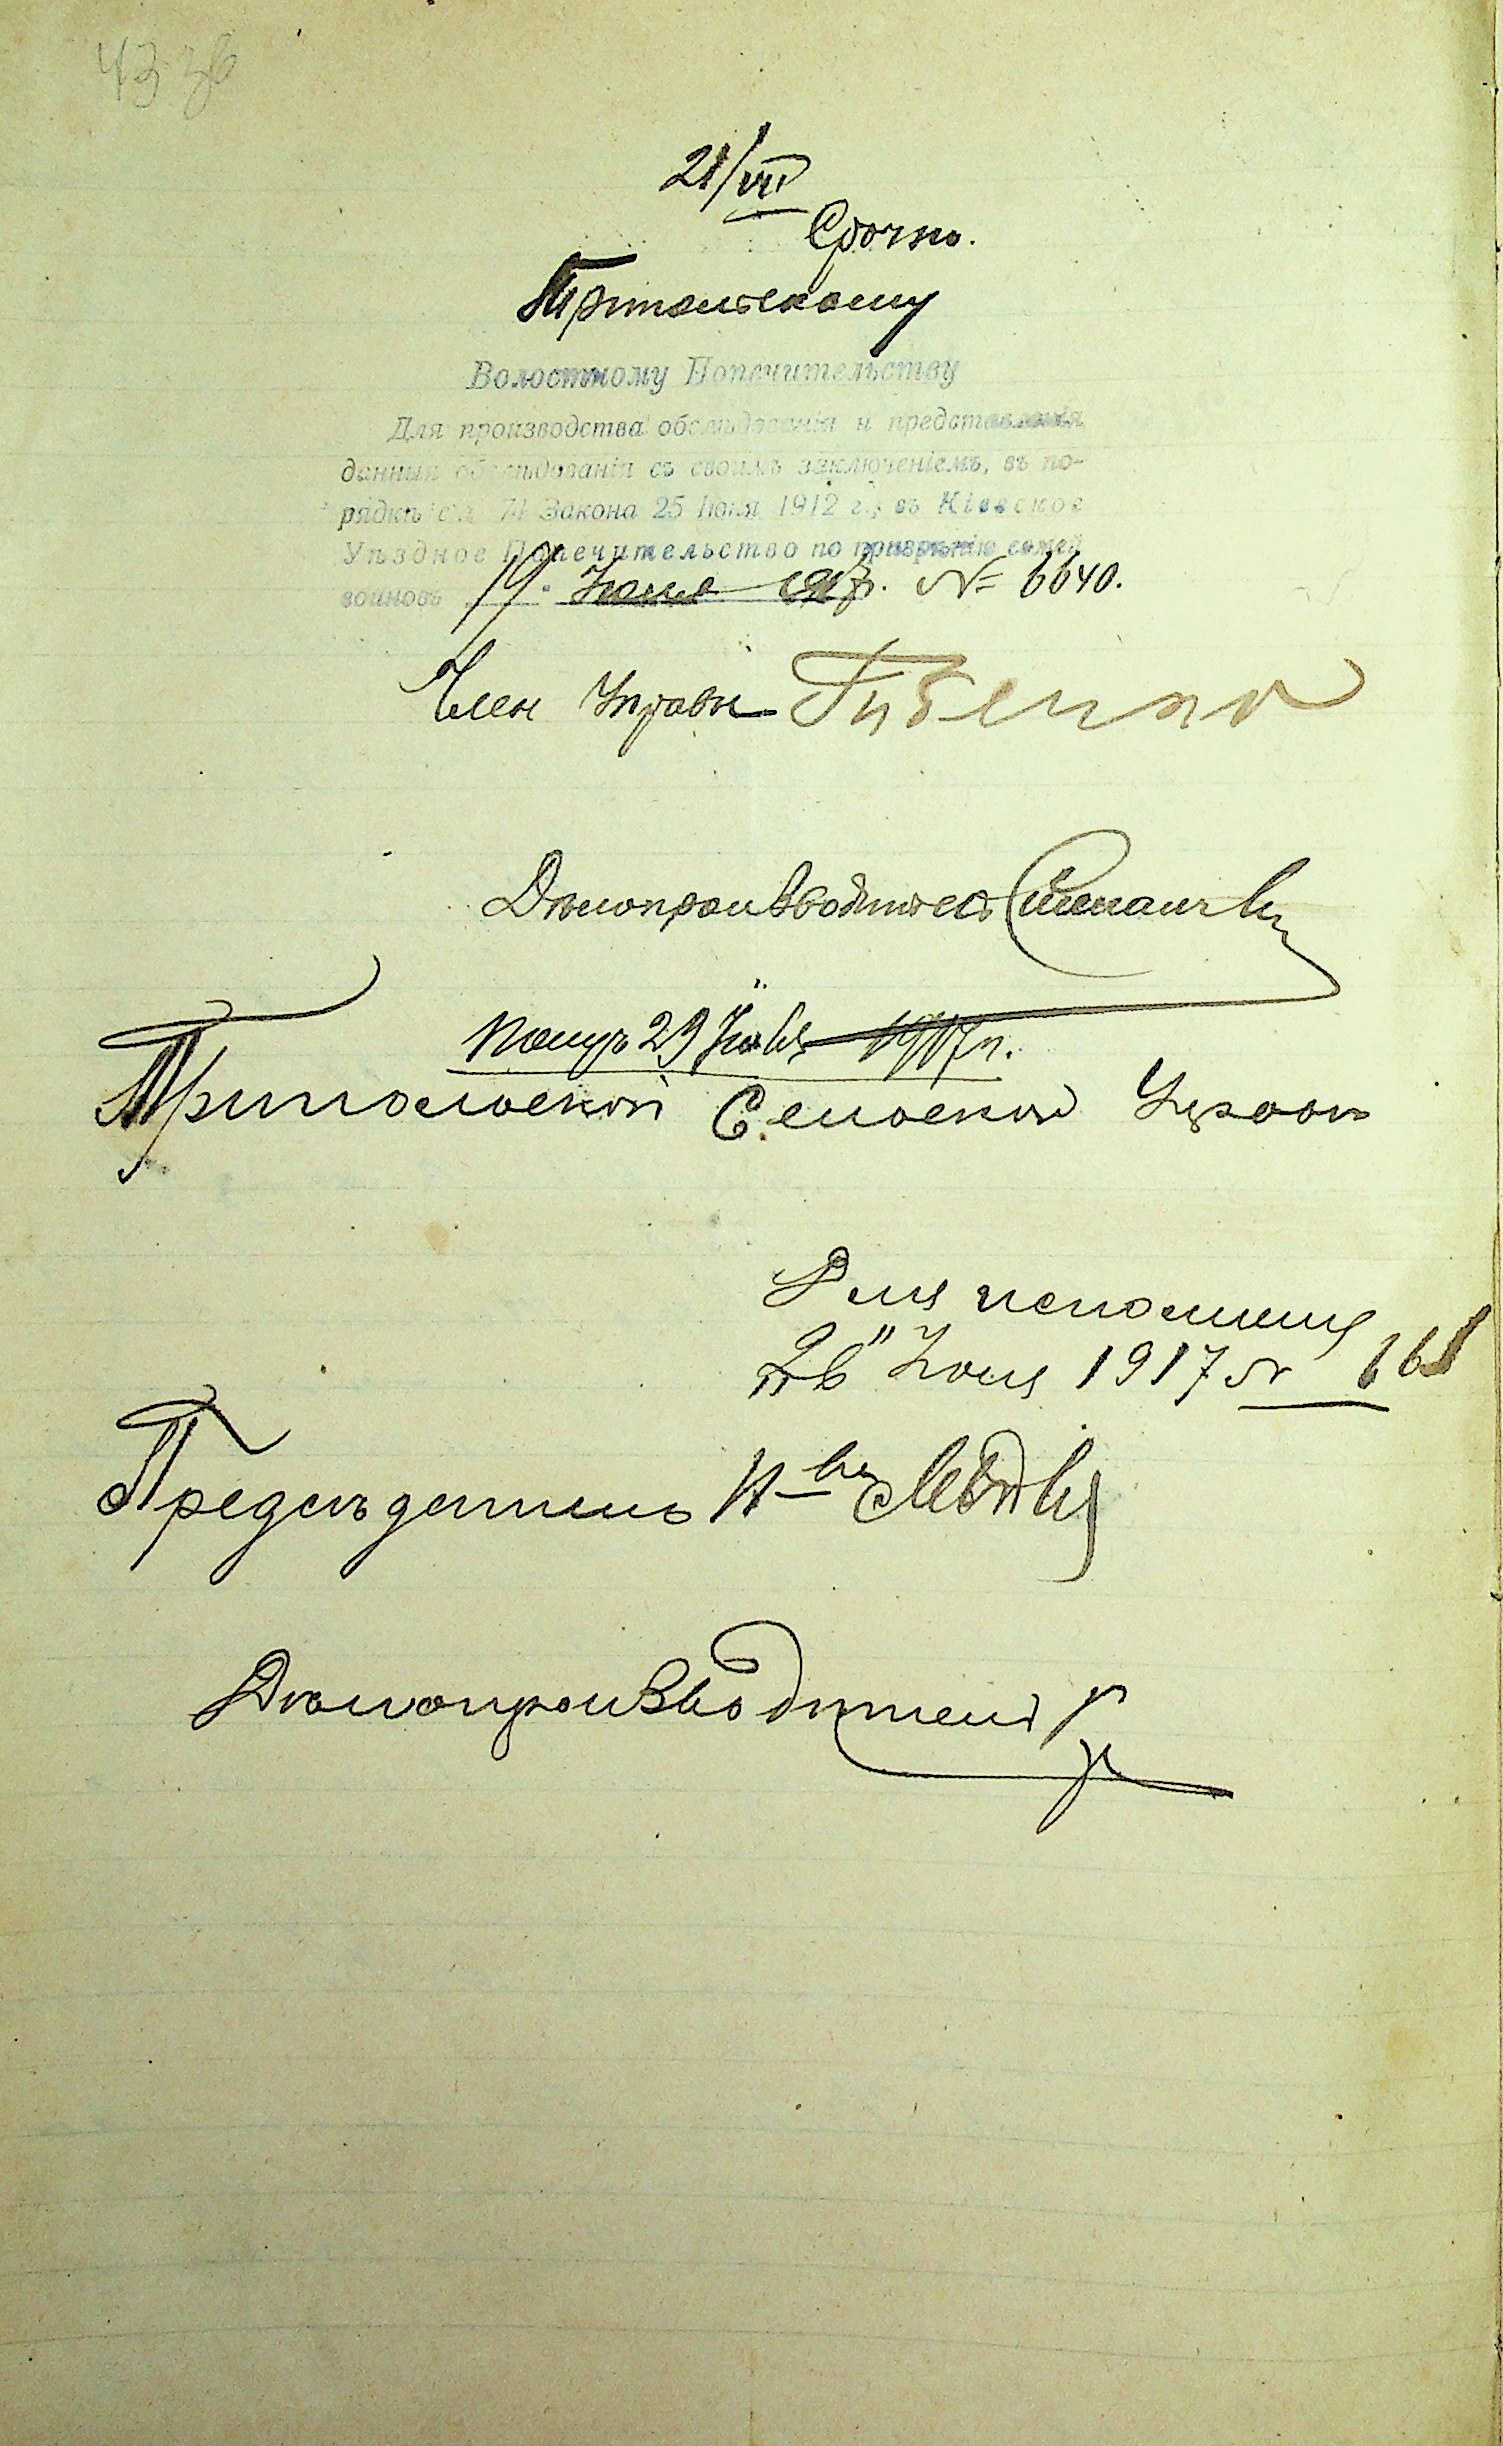 43 зв
21/VII
Срочно.
Трипольскому
Волостному Попечительству
Для производства обслѣдованія и представленія
данныя обслѣдованія съ своимъ заключеніемъ, въ по-
рядкѣ ст. 71 Закона 25 Іюня 1912 г., въ Кіевское
Уѣздное Попечительство по призрѣнію семей
воиновъ 19 Іюля 1917 г. № 6640.
Член Управы
Дѣлопроизводитель
Получ 29 1917 г.
Трипольской Сельской Управѣ
Для исполненія
26" Іюля 1917 №
Предсѣдатель
Дѣлопроизводитель